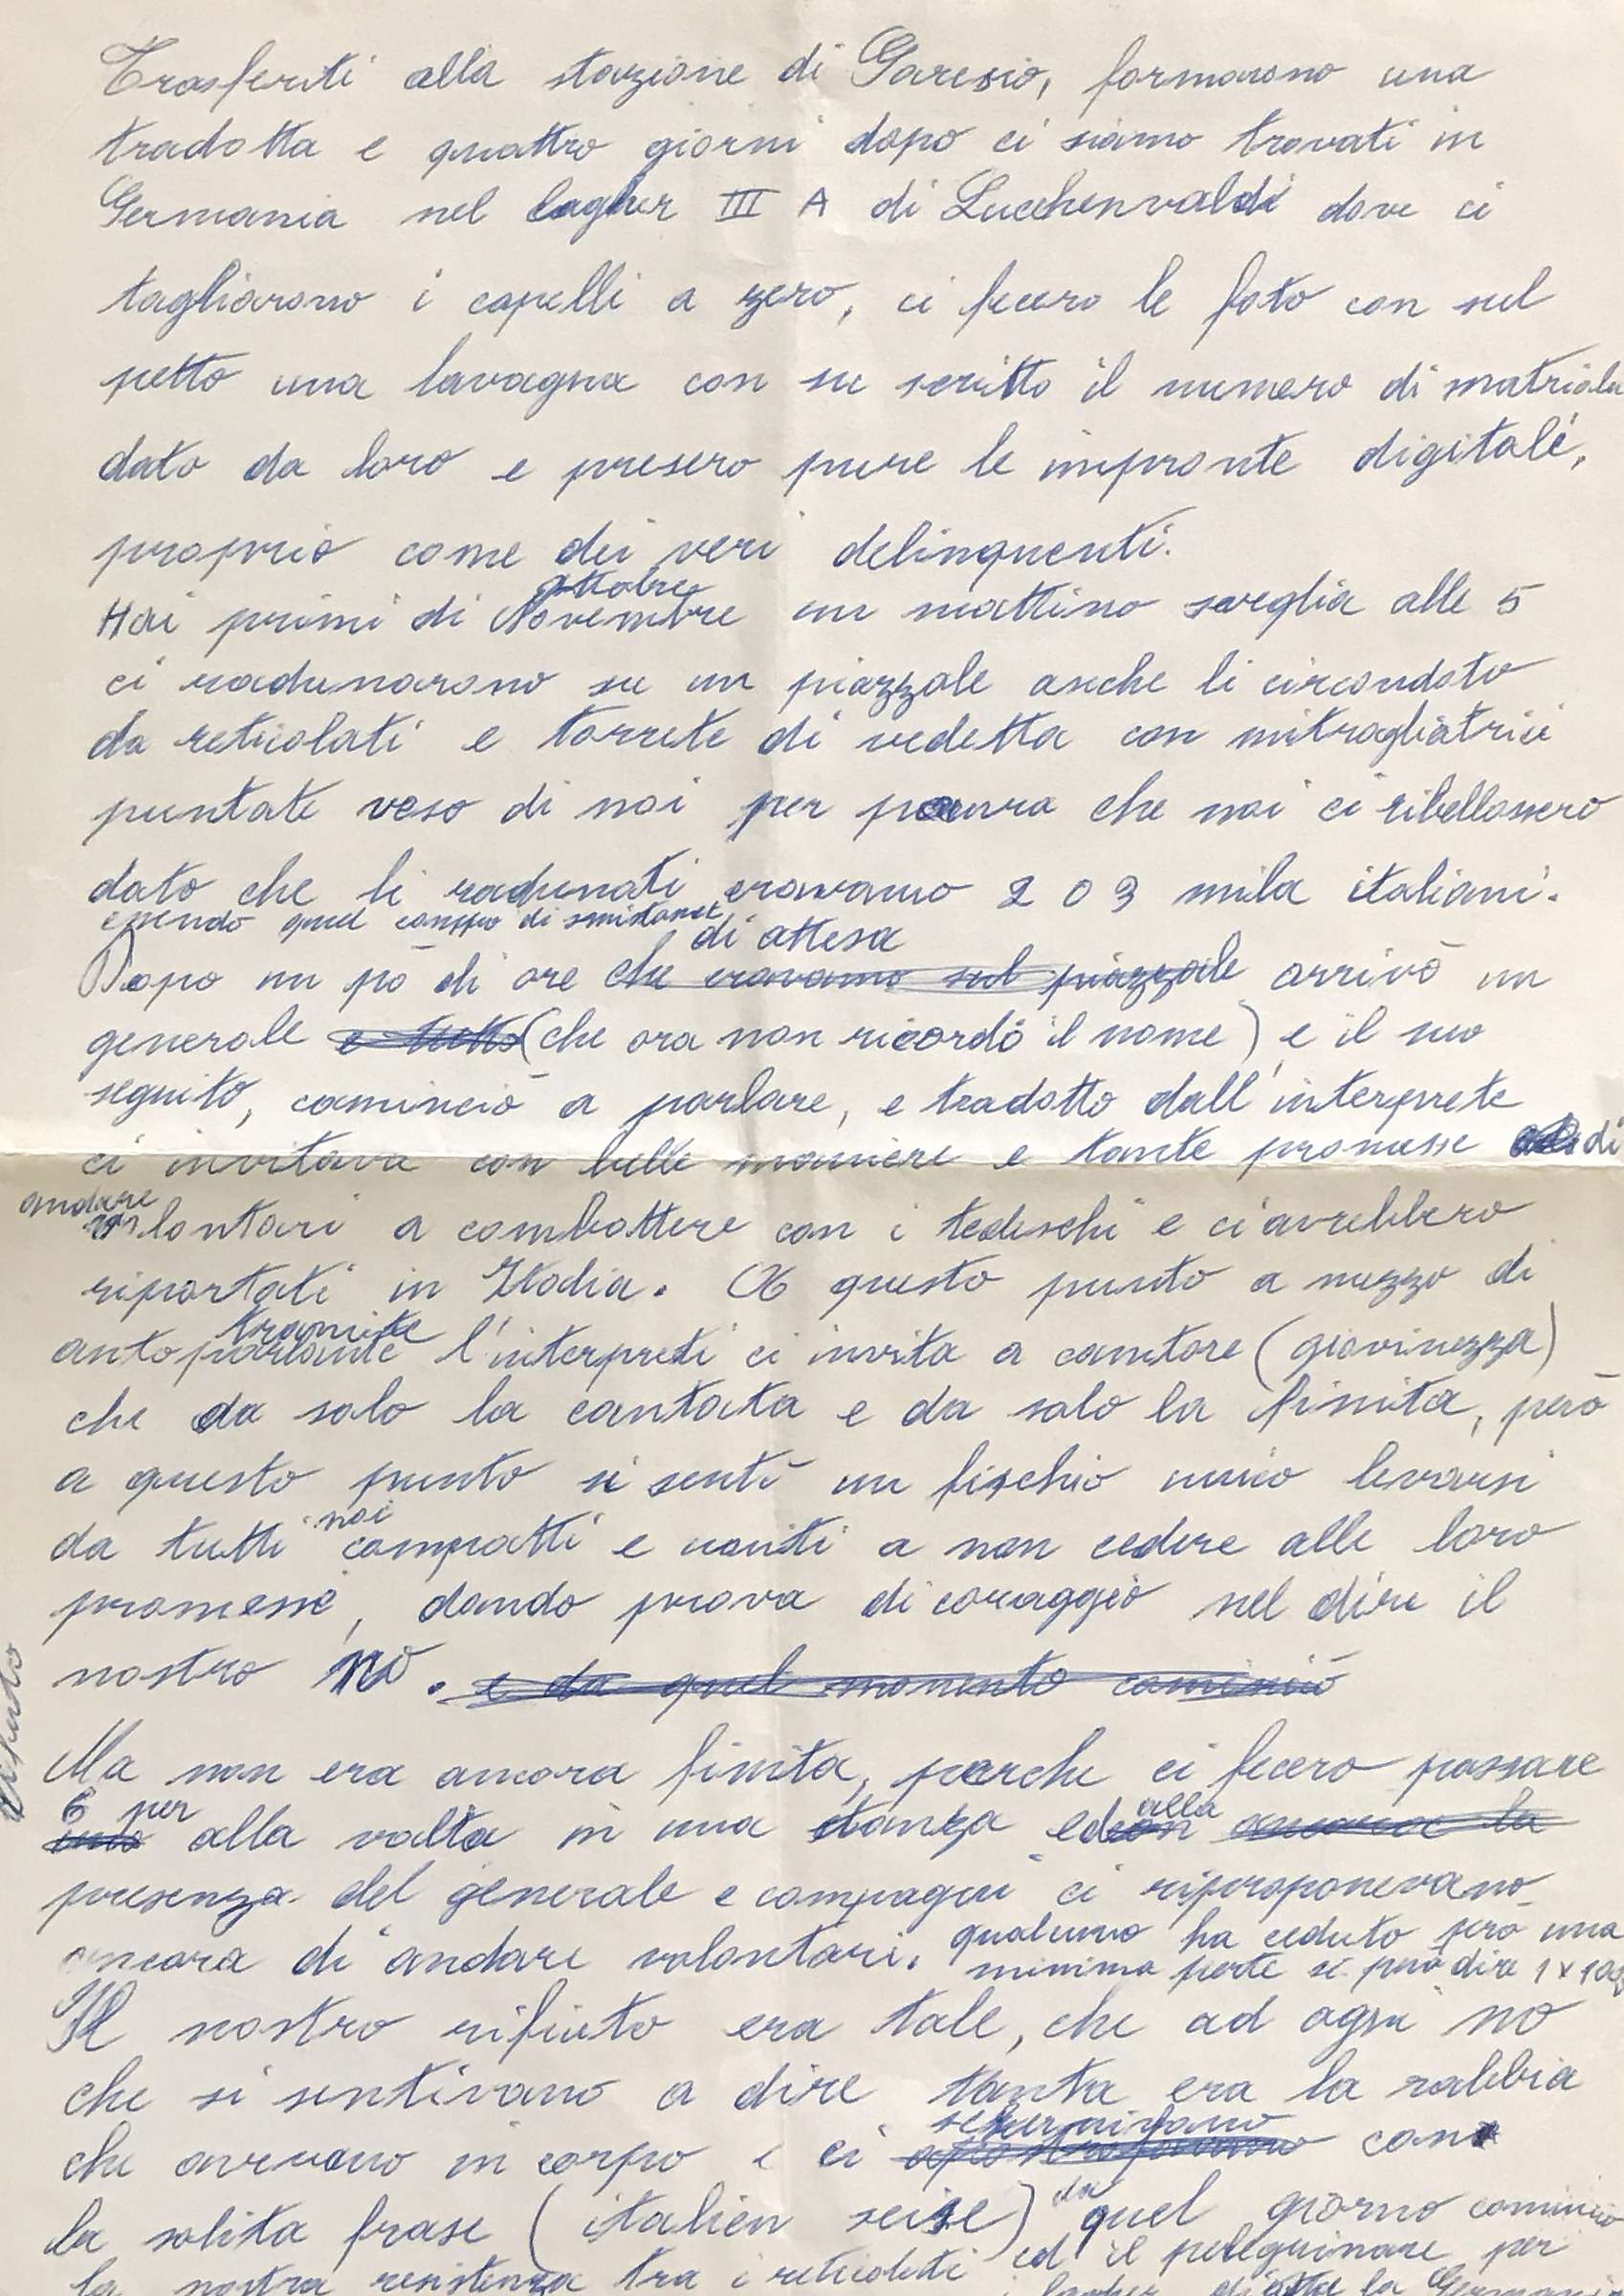 Trasferiti alla stazione di Garesio, formarono una
tradotta e quattro giorni dopo ci siamo trovati in
Germania nel lagher III A di Lucchenvaldi dove ci
tagliarono i capelli a zero, ci fecero le foto con sul
petto una lavagna con su scritto il numero di matricola
dato da loro e presero pure le impronte digitali,
proprio come dei veri delinquenti.
ottobre
Hai primi di Novembre un mattino sveglia alle 5
ci radunarono su un piazzale anche li circondato
da reticolati e torrete di vedetta con mitragliatrici
puntate veso di noi per paura che noi ci ribellassero
dato che li radunati eravamo 203 mila italiani.
essendo quel campo di
di attesa
Dopo un pò di ore che eravamo sul piazzale arrivò un
generale e tutto (che ora non ricordo il nome) e il suo
seguito, cominciò a parlare, e tradotto dall'interprete
ci invitava con belle maniere e tante promesse di
andare
volontari a combattere con i tedeschi e ci avrebbero
riportati in Italia. A questo punto a mezzo di
tramite
autoparlante l'interpreti ci invita a cantare (giovinezza)
che da solo la cantata e da solo la finita, però
a questo punto si sentì un fischio unico levarsi
noi
da tutti compatti e uniti a non cedere alle loro
promesse, dando prova di coraggio nel dire il
nostro no. e da quel momento cominciò
Ma non era ancora finita, perche ci fecero passare
6 per alla
uno alla volta in una stanza ed con ancora la
presenza del generale e compagni ci riproponevano
ancora di andare volontari. qualcuno ha ceduto però una
minima parte si può dire 1 x 100
Il nostro rifiuto era tale, che ad ogni no
che si sentivano a dire tanta era la rabbia
che avevano in corpo e ci
schernivano
con
la solita frase (italien seise) da quel giorno cominciò
la nostra resistenza tra i reticolati ed il pelegrinare per
la Germania